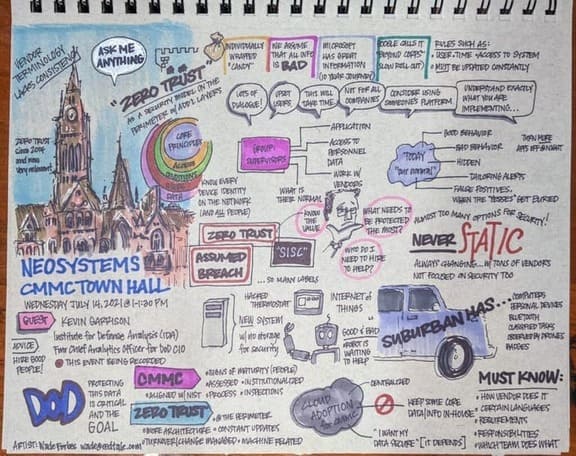 VENDOR
TERMINOLOGY
LACKS CONSISTENCY
ASK ME
ANYTHING
"ZERO TRUST"
AS A SECURITY MODEL ON THE
PERIMETER w/ ADD'L LAYERS
INDIVIDUALLY
WRAPPED
CANDY
WE ASSUME
THAT ALL INFO
IS BAD
MICROSOFT
HAS GREAT
INFORMATION
(ON YOUR JOURNEY)
GOOGLE CALLS IT
"BEYOND CORPS"
(SLOW ROLL OUT)
RULES SUCH AS:
• USER • TIME • ACCESS TO SYSTEM
• MUST BE UPDATED CONSTANTLY
LOTS OF
DIALOGUE!
UPSET
USERS
THIS WILL
TAKE TIME
NOT FOR ALL
COMPANIES
CONSIDER USING
SOMEONE'S PLATFORM
UNDERSTAND EXACTLY
WHAT YOU ARE
IMPLEMENTING...
ZERO TRUST
circa 2004
and now
very relevant
CORE
PRINCIPLES
ACCESS
DATA
KNOW EVERY
DEVICE IDENTITY
ON THE NETWORK
(AND ALL PEOPLE)
GROUP
SUPERVISORS
APPLICATION
ACCESS TO
PERSONNEL
DATA
WORK w/
VENDORS
WHAT IS
THEIR NORMAL
TODAY
"our normal"
GOOD BEHAVIOR
BAD BEHAVIOR
HIDDEN
TAILORING ALERTS
FALSE POSITIVES.
WHEN THE "ESSES" GET BLURRED
TURN MORE
APPS OFF @ NIGHT
KNOW
THE
VALUE
WHAT NEEDS TO
BE PROTECTED
THE MOST?
WHO DO I
NEED TO HIRE
TO HELP?
ALMOST TOO MANY OPTIONS FOR SECURITY!
NEVER STATIC
ALWAYS CHANGING... w/ TONS OF VENDORS
NOT FOCUSED ON SECURITY TOO
ZERO TRUST
ASSUMED
BREACH
"SISC"
...SO MANY LABELS
NEOSYSTEMS
CMMC TOWN HALL
WEDNESDAY JULY 14, 2021 @ 1-1:30 PM
GUEST
KEVIN GARRISON
Institute for Defense Analysis (IDA)
Fmr Chief Analytics Officer for DoD CIO
THIS EVENT BEING RECORDED
ADVICE
HIRE GOOD
PEOPLE!
HACKED
THERMOSTAT
NEW SYSTEM
w/ no storage
for security
INTERNET OF
THINGS
GOOD & BAD
ROBOT IS
WAITING
TO HELP
SUBURBAN HAS...
COMPUTERS
PERSONAL DEVICES
BLUETOOTH
CLASSIFIED TASKS
OBSERVED BY DRONES
BADGES
DoD
PROTECTING
THIS DATA
IS CRITICAL
AND THE
GOAL
CMMC
• ALIGNED w/ NIST
• TERMS OF MATURITY (PEOPLE)
• ASSESSED • INSTITUTIONALIZED
• PROCESS • INSPECTIONS
ZERO TRUST
• @ THE PERIMETER
• MORE ARCHITECTURE • CONSTANT UPDATES
• TURNOVER/CHANGE MANAGED • MACHINE RELATED
CLOUD
ADOPTION
CENTRALIZED
KEEP SOME CORE
DATA/INFO IN-HOUSE
"I WANT MY
DATA SECURE" [IT DEPENDS]
MUST KNOW:
• HOW VENDOR DOES IT
• CERTAIN LANGUAGES
• REQUIREMENTS
• RESPONSIBILITIES
• WHICH TEAM DOES WHAT
ARTIST: Wade Forbes wade@redtale.com